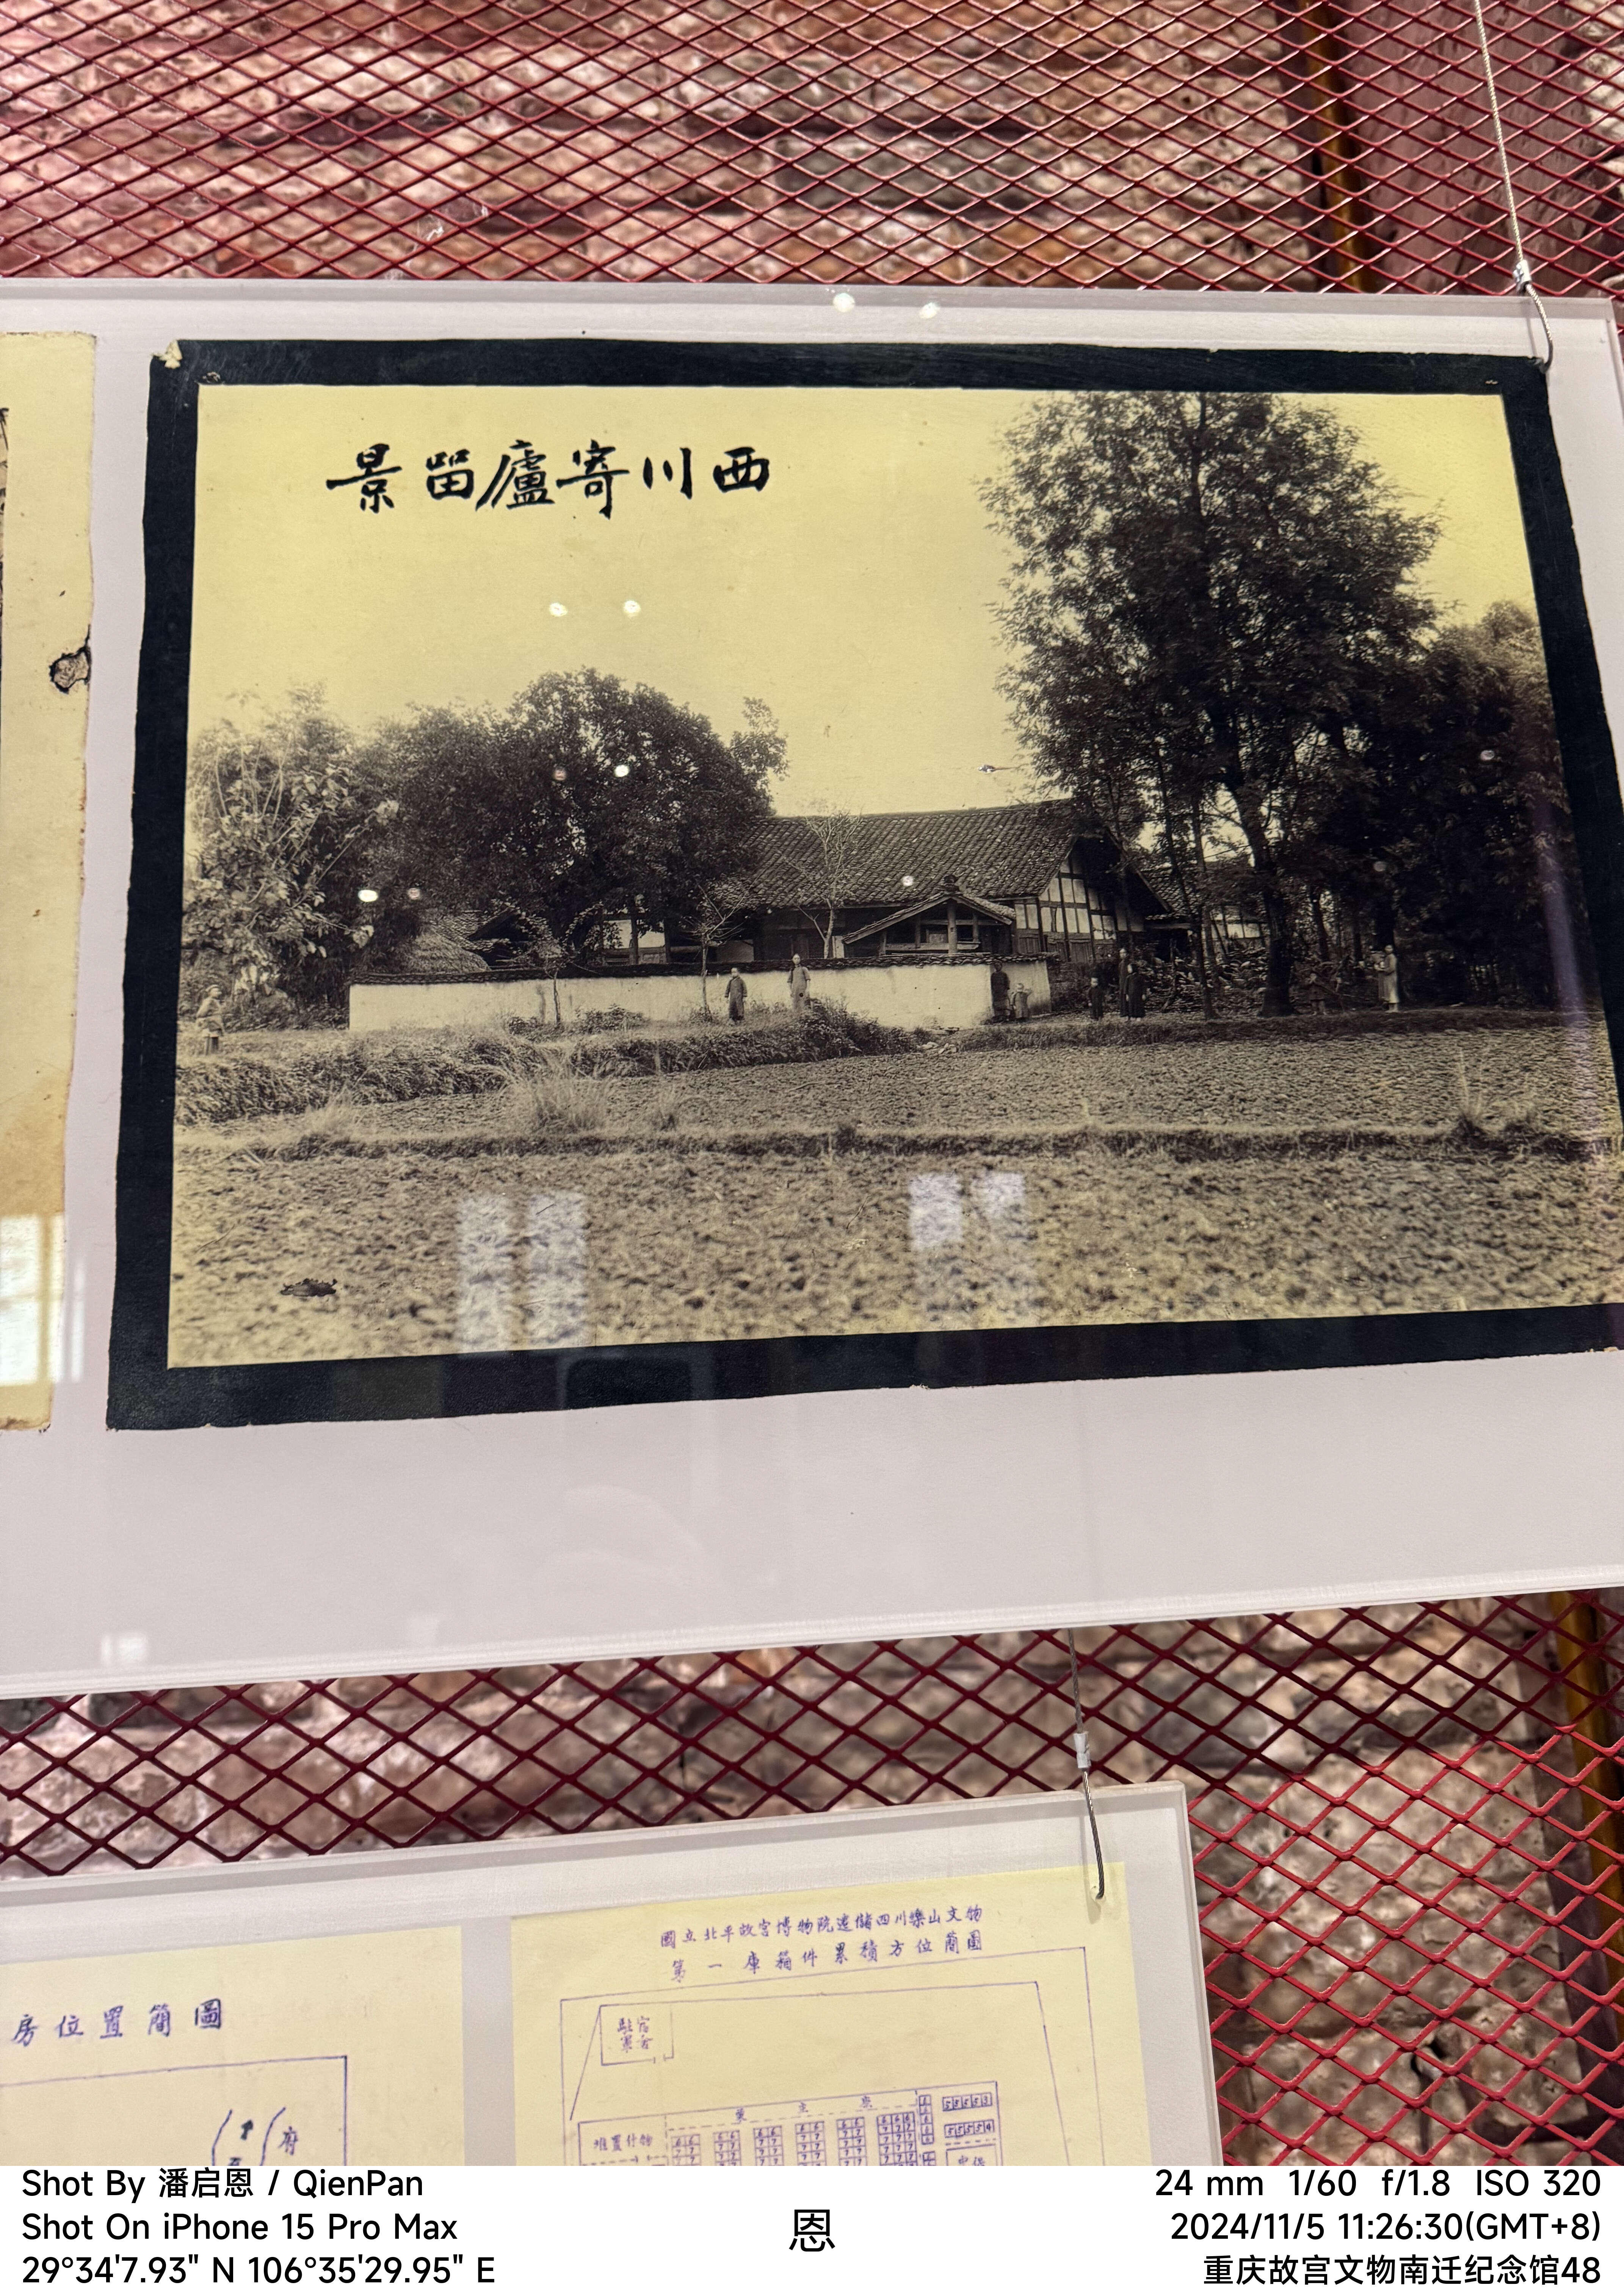 西川寄廬留景
國立北平故宮博物院遷儲四川樂山文物
第一庫箱件累積方位簡圖
房位置簡圖
駐軍
宿舍
府
堆置什物
Shot By 潘启恩 / QienPan
Shot On iPhone 15 Pro Max
29°34'7.93" N 106°35'29.95" E
恩
24 mm 1/60 f/1.8 ISO 320
2024/11/5 11:26:30(GMT+8)
重庆故宫文物南迁纪念馆48